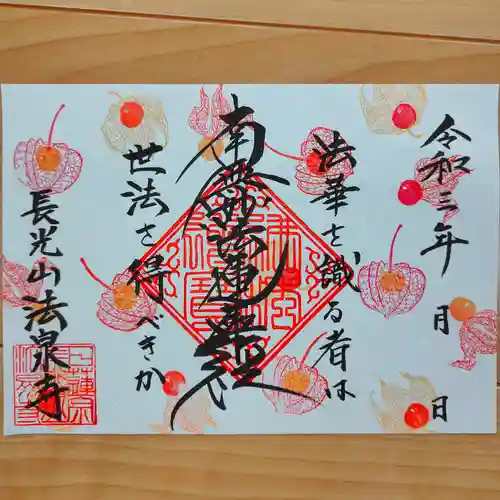 令和三年 月 日
法華を識る者は
南無妙法蓮華経
世法を得べきか
長光山法泉寺